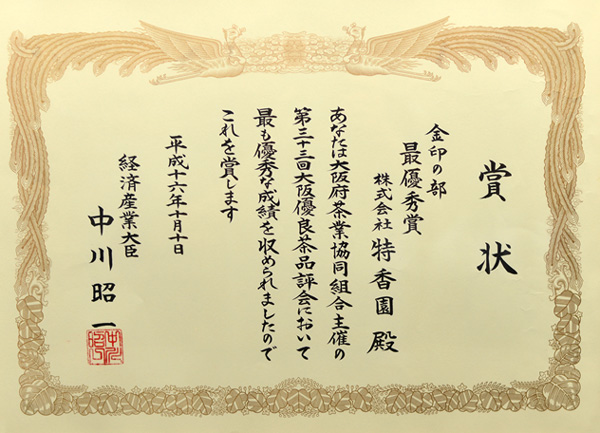 賞状
金印の部
最優秀賞
株式会社 特香園 殿
あなたは大阪府茶業協同組合主催の
第三十三回大阪優良茶品評会において
最も優秀な成績を収められましたので
これを賞します
平成十六年十月十日
経済産業大臣
中川昭一